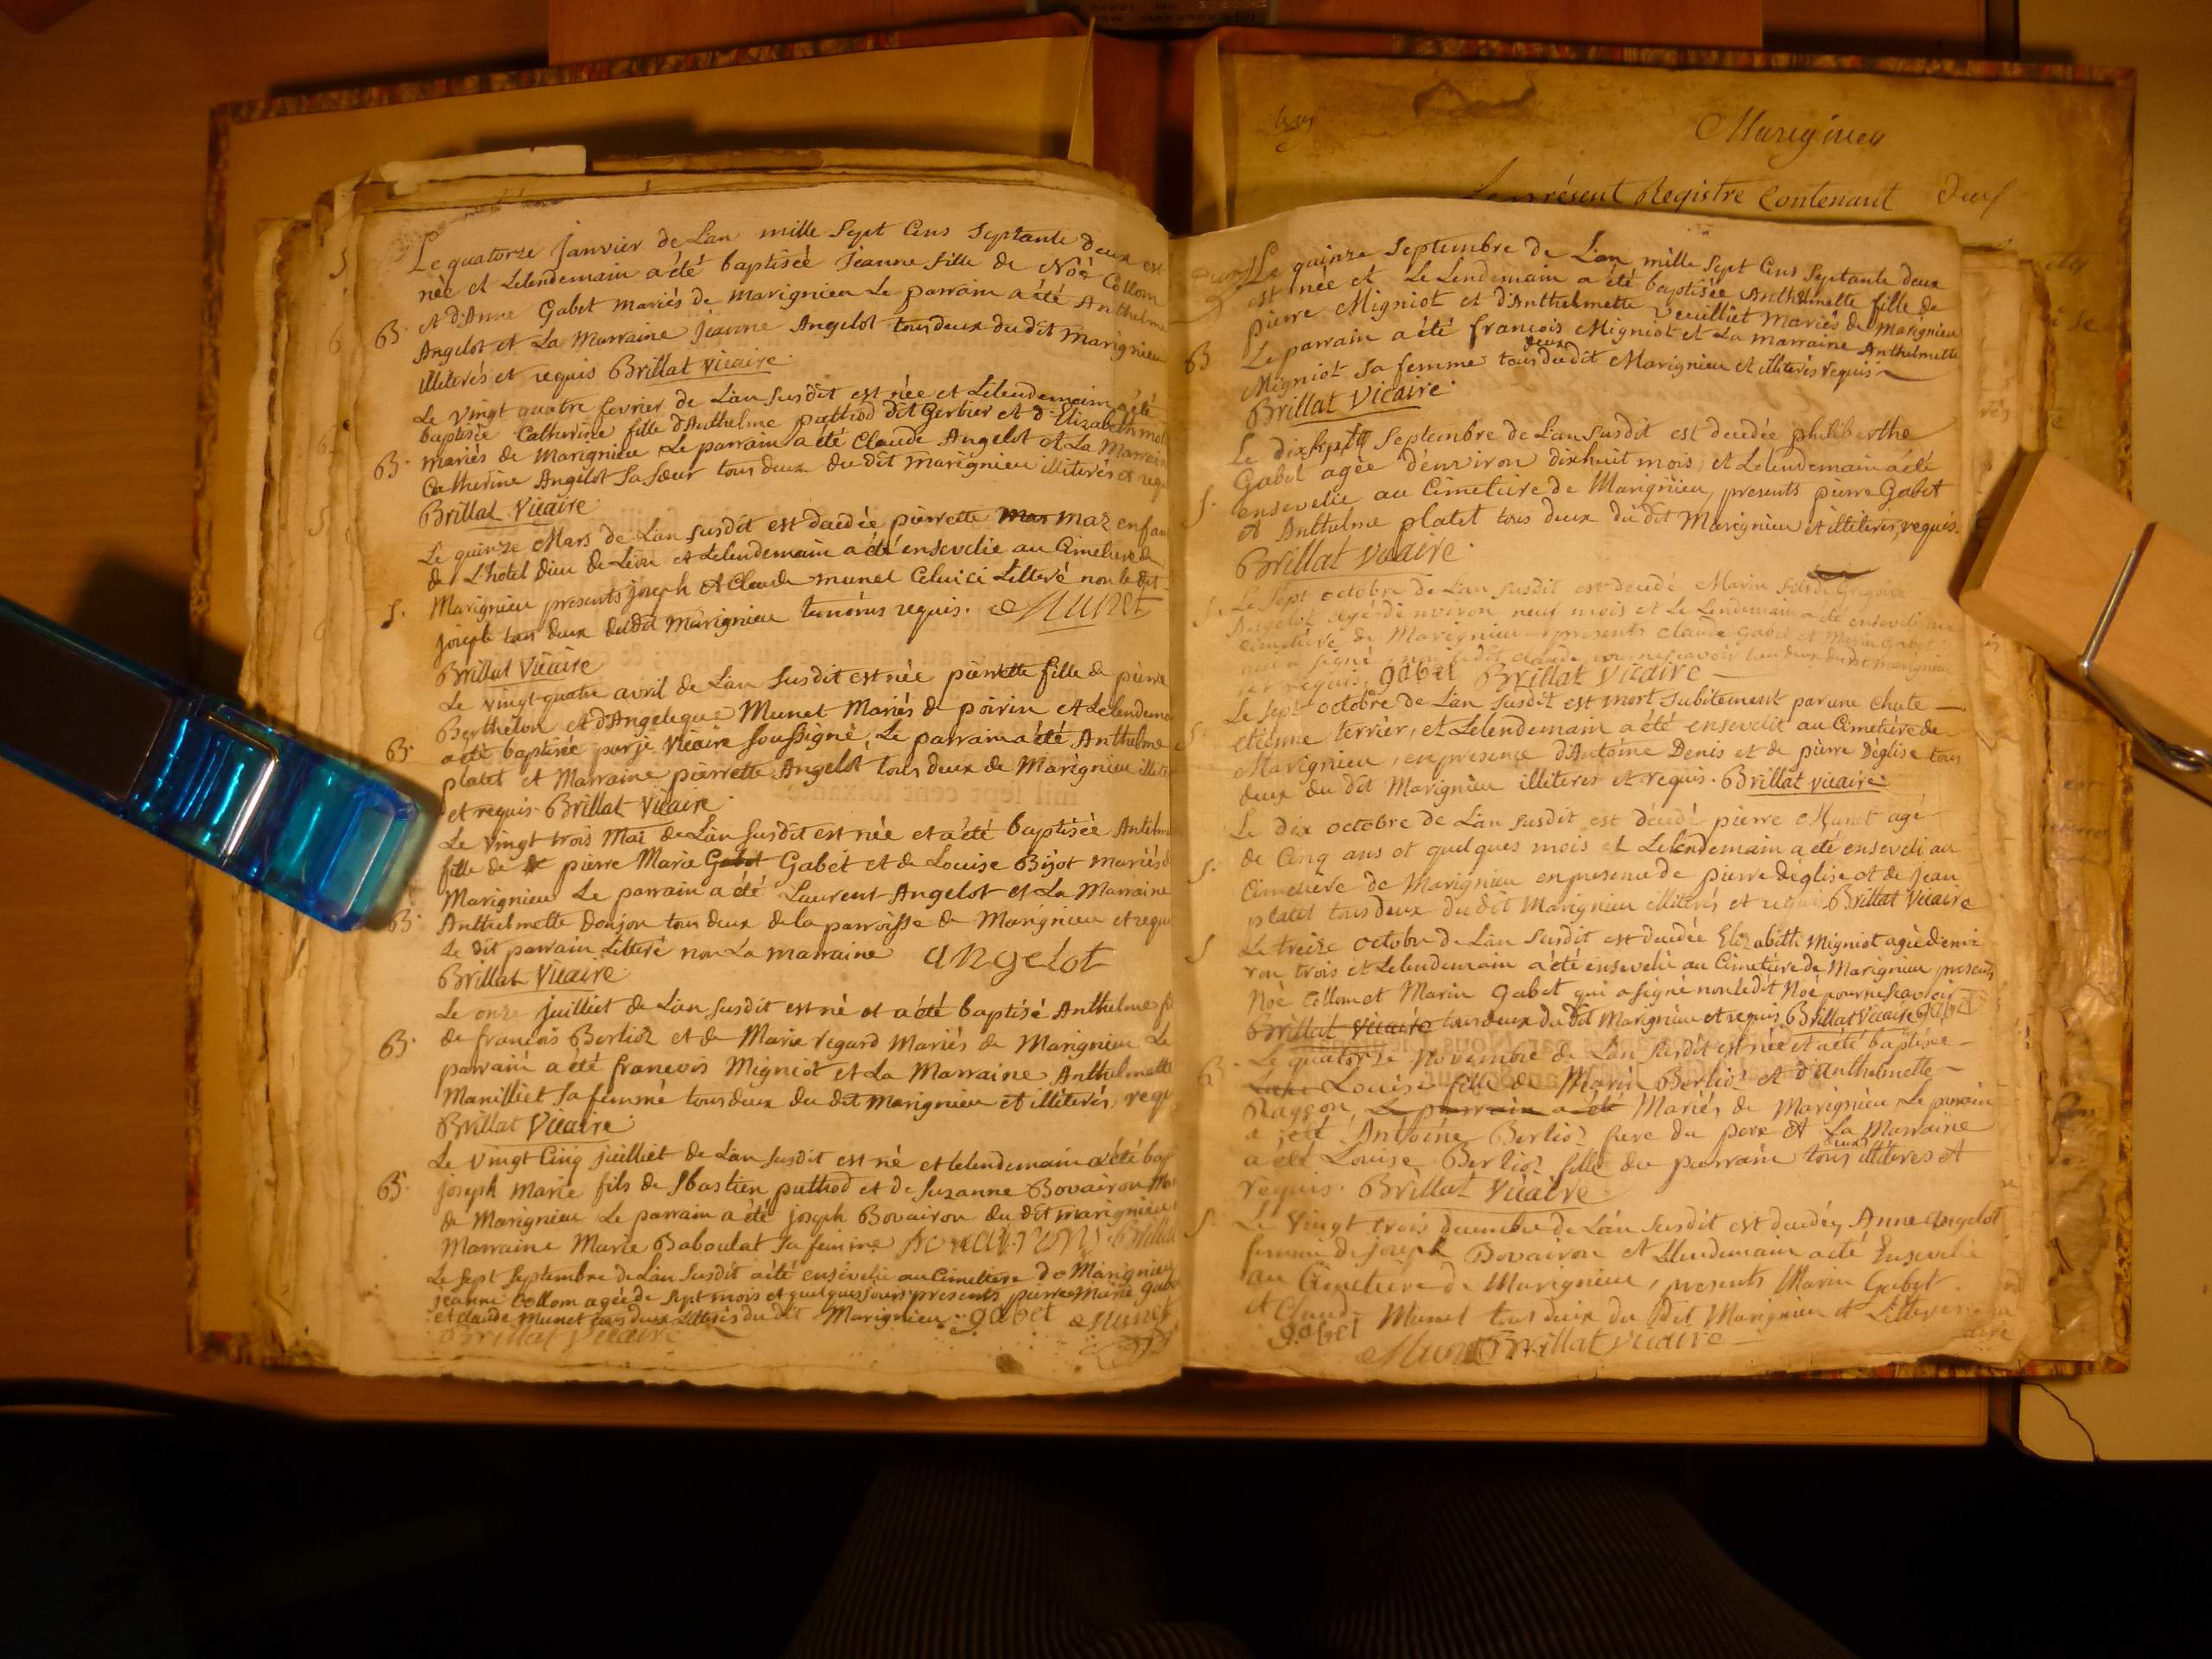 Le quatorze Janvier de L'an mille Sept Cens Septante deux est
née et Lelendemain a été baptisée Jeanne fille de Noè Collom
B. et d'Anne Gabet mariés de marignieu Le parrain a été Anthelme
Angelot et La Marraine Jeanne Angelot tous deux du dit marignieu
illiterés et requis Brillat Vicaire
Le Vingt quatre fevrier de L'an susdit est née et Lelendemain a été
baptisée Catherine fille d'Anthelme puthod dit Gerbier et d'Elizabeth
B. mariés de Marignieu Le parrain a été Claude Angelot et La Marraine
Catherine Angelot Sa Sœur tous deux du dit marignieu illiterés et
Brillat Vicaire
Le quinze Mars de L'an susdit est decedée pierrette Mar maz enfan
de L'hotel dieu de Lion et Lelendemain a été ensevelie au Cimetiere de
S. Marignieu presents joseph et Claude munet Celui ci Litteré non le dit
joseph tous deux dudit Marignieu temoins requis. Munet
Brillat Vicaire
Le vingt-quatre avril de L'an susdit est née pierrette fille de pierre
Berthelon et d'Angelique Munet Mariés de poirin et Lelendem
B. a été baptisée par je Vicaire Soussigné, Le parrain a été Anthelme
platet et Marraine pierrette Angelot tous deux de Marignieu
et requis Brillat Vicaire
Le Vingt trois Mai de L'an Susdit est née et a été baptisée
fille de pierre Marie Gabet Gabet et de Louise Bijot mariés d
Marignieu Le parrain a été Laurent Angelot et La Marraine
B. Anthelmette Donjon tous deux de la parroisse de Marignieu et requ
Le dit parrain Litteré non La marraine angelot
Brillat Vicaire
Le onze juilliet de L'an susdit est né et a été baptisé Anthelme
B. de françois Berlioz et de Marie regard Mariés de Marignieu Le
parrain a été françois Migniot et La Marraine Anthelmette
Manilliet Sa femme tous deux du dit Marignieu et illiterés, requ
Brillat Vicaire
Le Vingt Cinq juilliet de L'an susdit est né et lelendemain a été bap
B. joseph Marie fils de Sbastien puthod et de Suzanne Bovairon
de Marignieu Le parrain a été joseph Bovairon du dit marignieu
Marraine Marie Baboulat Sa femme
Le Sept Septembre de L'an Susdit a été ensevelie au Cimetiere de Marignieu
jeanne Collom agée de Sept mois et quelques jours presents pierre Marie gabet
et claude munet tous deux Litterés du dit Marignieu gabet Munet
Brillat Vicaire
Marignieu
Le présent Registre Contenant
Le quinze Septembre de L'an mille Sept Cens Septante deux
est née et Le Lendemain a été baptisée Anthelmette fille de
pierre Migniot et d'Anthelmette Veuilliet mariés de Marignieu
B Le parrain a été françois Migniot et La marraine Anthelmette
Migniot Sa femme tous deux du dit Marignieu et illiterés requis
Brillat Vicaire
Le dix Sept Septembre de L'an susdit est decedée philiberthe
Gabet agée d'environ dixhuit mois, et Lelendemain a été
S. ensevelie au Cimetiere de Marignieu, presents pierre Gabet
et Anthelme platet tous deux du dit Marignieu et illiterés, requis.
Brillat Vicaire
S. Le Sept octobre de L'an Susdit est decedé Marin fils de Gregoire
Angelot agé d'environ neuf mois et Le Lendemain a été enseveli au
Cimetiere de Marignieu presents Claude Gabet et Marin Gabet
qui a signé non ledit claude pour ne scavoir tous deux dudit Marignieu
requis, gabet Brillat Vicaire
Le Sept octobre de L'an susdit est mort subitement par une chute
S. etienne terrier, et Lelendemain a été enseveli au Cimetiere de
Marignieu, en presence d'Antoine Denis et de pierre Deglise tous
deux du dit Marignieu illiterés et requis. Brillat vicaire
Le dix octobre de L'an susdit est decedé pierre Munet agé
S. de Cinq ans et quelques mois et Lelendemain a été enseveli au
Cimetiere de Marignieu en presence de pierre deglise et de jean
platet tous deux du dit Marignieu illiterés et requis Brillat Vicaire
S Le treize octobre de L'an Susdit est decedée Elizabeth Migniot agée d'envi
ron trois et Lelendemain a été ensevelie au Cimetiere de Marignieu presents
Noè Collom et Marin Gabet qui a signé non ledit Noé pour ne scavoir
Brillat Vicaire tous deux du dit Marignieu et requis Brillat Vicaire gabet
Le quatorze Novembre de L'an susdit est née et a été baptisée
B. Louise fille de Marin Berlioz et d'anthelmette
Raggon, Le parrain a été Mariés de Marignieu, Le parrain
a été Antoine Berlioz frere du pere et La Marraine
a été Louise Berlioz fille du parrain tous deux illiteres et
requis. Brillat Vicaire
S. Le Vingt trois decembre de L'an susdit est decedée Anne Angelot
femme de joseph Bovairon et Lelendemain a été Ensevelie
au Cimetiere de Marignieu, presents Marin Gabet
et Claude Munet tous deux du dit Marignieu et Litterés
gabet Munet Brillat Vicaire